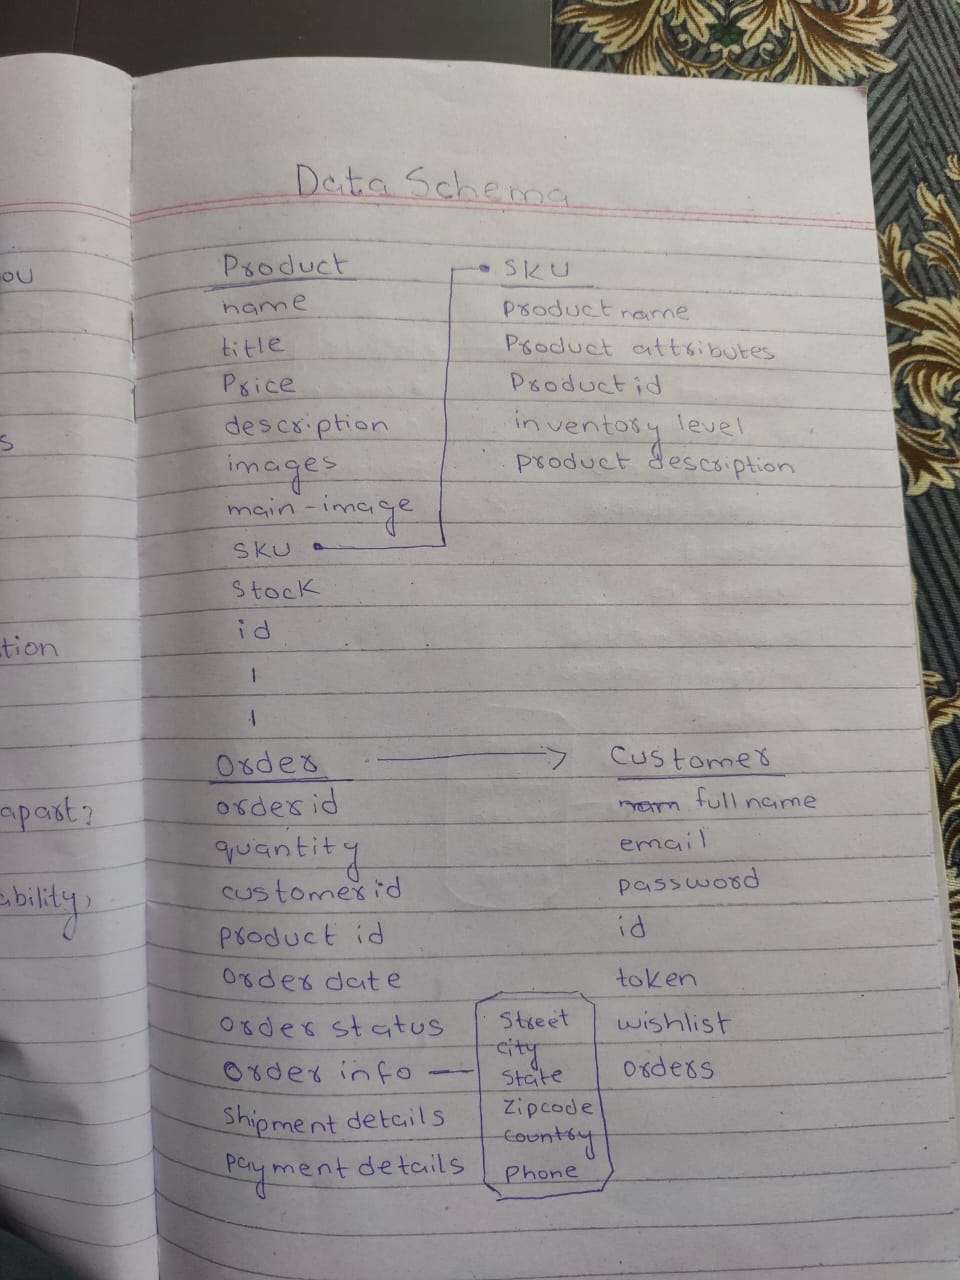 Data Schema
Product
name
title
Price
description
images
main-image
SKU
Stock
id
SKU
Product name
Product attributes
Product id
inventory level
product description
Order
order id
quantity
customer id
product id
Order date
order status
Order info
Shipment details
payment details
Street
city
State
Zipcode
Country
Phone
Customer
full name
email
password
id
token
wishlist
orders
ou
s
tion
apart?
ability,